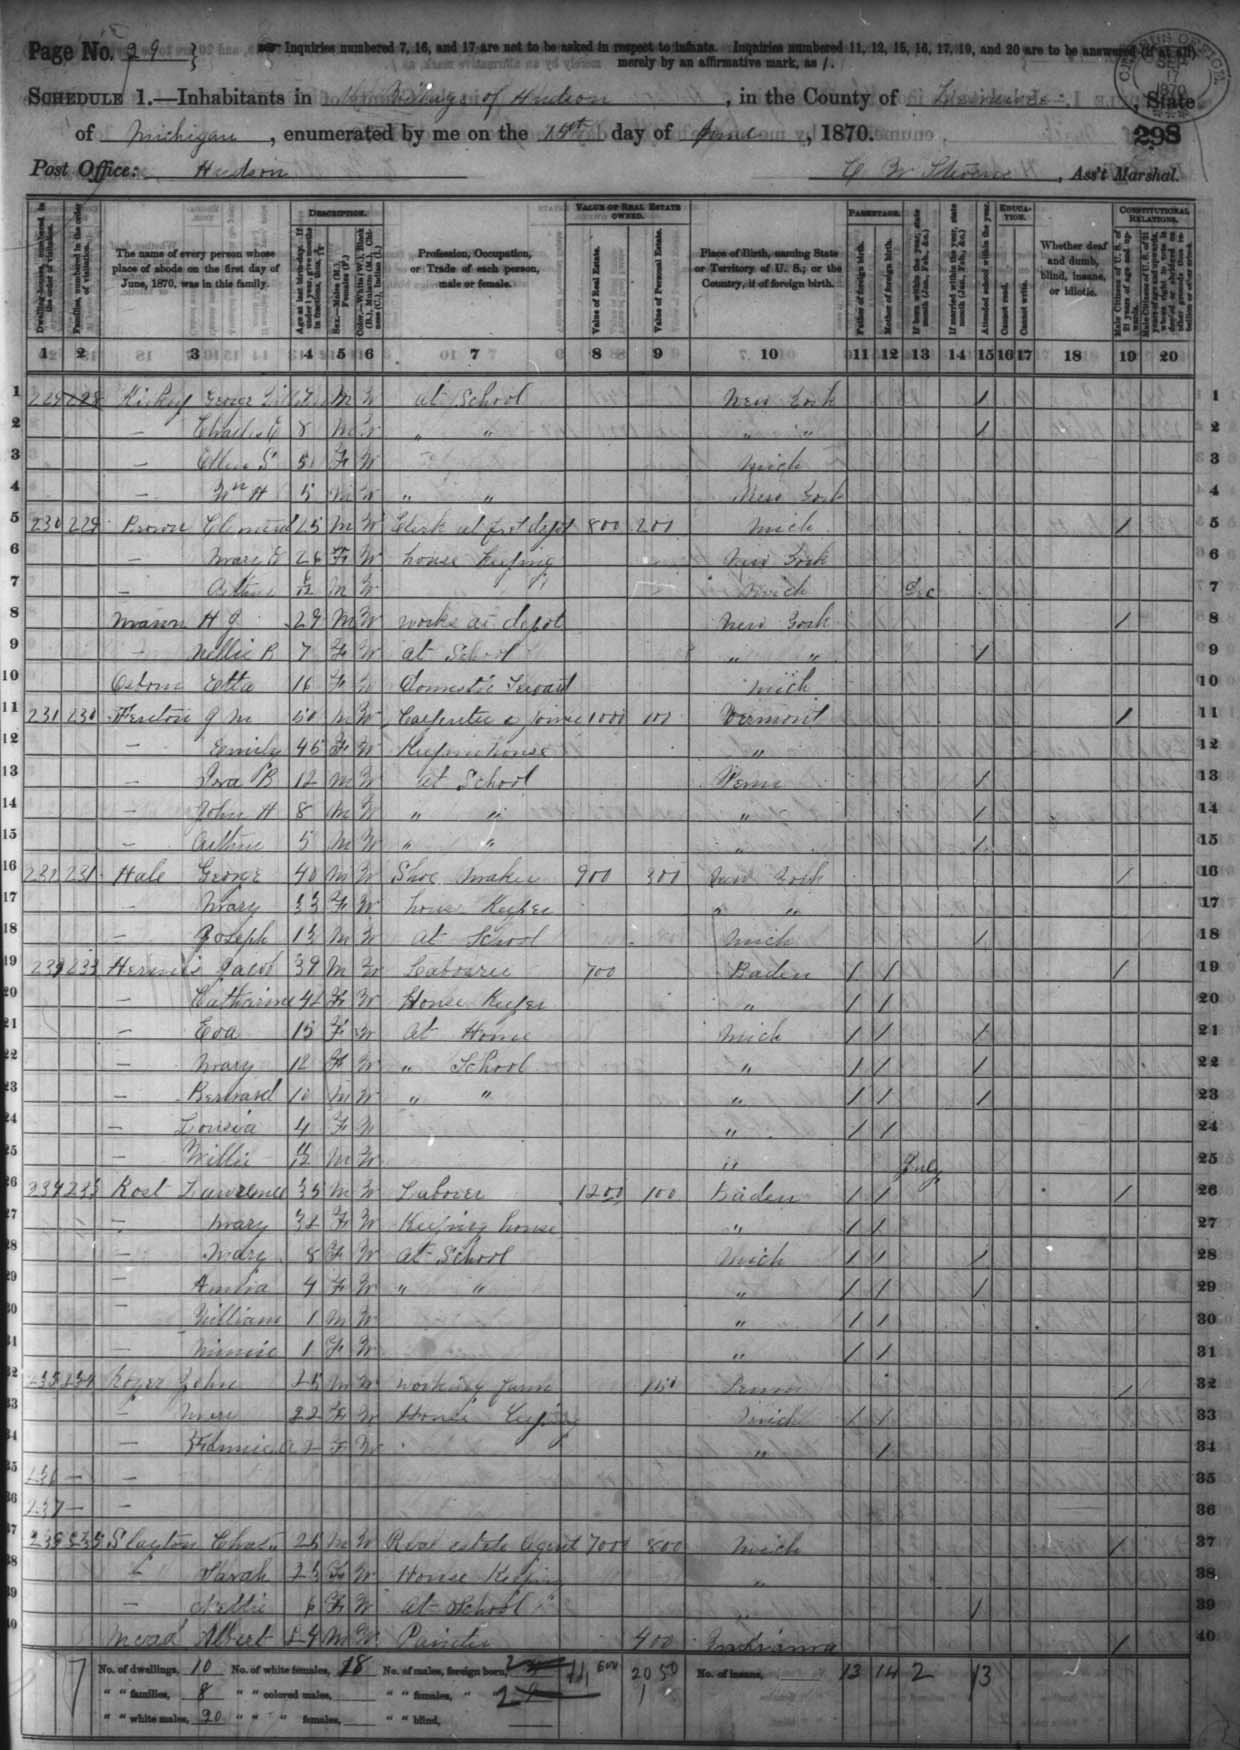 Page No. 29 } Inquiries numbered 7, 16, and 17 are not to be asked in respect to infants. Inquiries numbered 11, 12, 15, 16, 17, 19, and 20 are to be answered (if at all)
merely by an affirmative mark, as /.
SCHEDULE 1.—Inhabitants in Village of Hudson, in the County of , State
of Michigan, enumerated by me on the 15th day of June, 1870. 298
Post Office: Hudson C W , Ass't Marshal.
DESCRIPTION. VALUE OF REAL ESTATE OWNED. PARENTAGE. EDUCATION. CONSTITUTIONAL RELATIONS.
Dwelling-houses, numbered in the order of visitation. Families, numbered in the order of visitation. The name of every person whose place of abode on the first day of June, 1870, was in this family. Age at last birth-day. Sex.—Males (M.), Females (F.) Profession, Occupation, or Trade of each person, male or female. Value of Real Estate. Value of Personal Estate. Place of Birth, naming State or Territory of U. S.; or the Country, if of foreign birth. Father of foreign birth. Mother of foreign birth. If born within the year, state month (Jan., Feb., &c.) If married within the year, state month (Jan., Feb., &c.) Attended school within the year. Cannot read. Cannot write. Whether deaf and dumb, blind, insane, or idiotic.
1 2 3 4 5 6 7 8 9 10 11 12 13 14 15 16 17 18 19 20
1 229 228 George M W at School New York / 1
2 — Charles E 8 M W „ „ „ „ / 2
3 — Ellen S F W Mich 3
4 — Wm H 5 M W „ „ New York 4
5 230 229 Brown 25 M W Clerk at depot 800 200 Mich / 5
6 — Mary E 26 F W house Keeping New York 6
7 — M W Mich Dec 7
8 Mason H 29 M W works at depot New York / 8
9 — Nellie B 7 F W at School „ „ / 9
10 Osborn Etta 16 F W Domestic Servant Mich 10
11 231 230 M 50 M W Carpenter & joiner 1000 100 Vermont / 11
12 — Emily 45 F W Keeping house „ 12
13 — Ira B 12 M W at School / 13
14 — John H 8 M W „ „ „ / 14
15 — Arthur 5 M W „ „ „ / 15
16 232 231 Hale George 40 M W Shoe maker 900 300 New York / 16
17 — Mary 33 F W house Keeper „ „ 17
18 — Joseph 13 M W at School Mich / 18
19 233 Jacob 39 M W Labourer 700 Baden / / / 19
20 — Catharine 42 F W House Keeper „ / / 20
21 — Eva 15 F W at Home Mich / / / 21
22 — Mary 12 F W „ School „ / / / 22
23 — Bernard 10 M W „ „ „ / / / 23
24 — Louisa 4 F W „ / / 24
25 — Willie M W „ July 25
26 234 233 Kost Lawrence 35 M W Laborer 1200 100 Baden / / / 26
27 — Mary 32 F W Keeping house „ / / 27
28 — Mary 8 F W at School Mich / / / 28
29 — Amelia 4 F W „ „ „ / / / 29
30 — William 1 M W „ / / 30
31 — Minnie 1 F W „ / / 31
32 235 234 John 25 M W working farm 150 Penn / 32
33 — Mary 22 F W House Keeping Mich / / 33
34 — Fannie 2 F W „ / 34
35 236 — — 35
36 237 — — 36
37 238 235 Slayton Chas 25 M W Real estate Agent 7000 800 Mich / 37
38 „ Sarah 25 F W House Keeping „ 38
39 — Nettie 6 F W at School „ / 39
40 Mead Albert 24 M W Painter 400 Indiana / 40
No. of dwellings, 10 No. of white females, 18 No. of males, foreign born, 2 11,600 2050 No. of insane, 13 14 2 13
" " families, 8 " " colored males, " " females, " " 2
" " white males, 20 " " " females, " " blind,